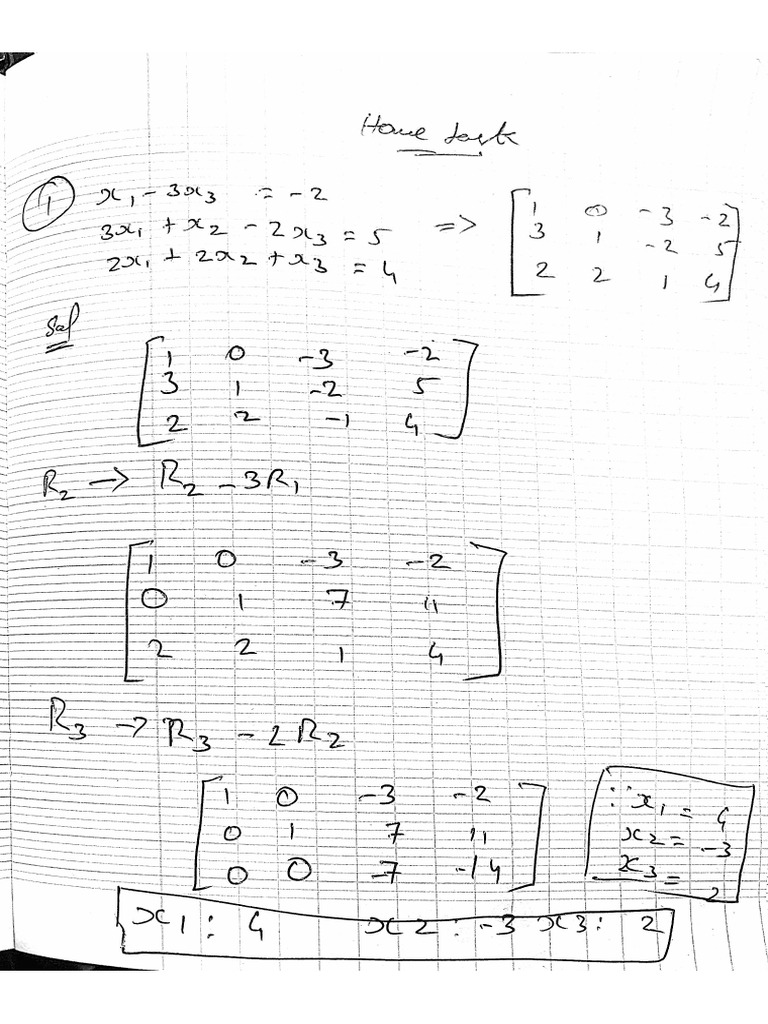 Home task
① x₁ - 3x₃ = -2
3x₁ + x₂ - 2x₃ = 5 =>
2x₁ + 2x₂ + x₃ = 4
1 0 -3 -2
3 1 -2 5
2 2 1 4
Sol
1 0 -3 -2
3 1 -2 5
2 2 -1 4
R₂ → R₂ - 3R₁
1 0 -3 -2
0 1 7 11
2 2 1 4
R₃ → R₃ - 2R₂
1 0 -3 -2
0 1 7 11
0 0 -7 -14
∵ x₁ = 4
x₂ = -3
x₃ = 2
x1 : 4 x2 : -3 x3 : 2